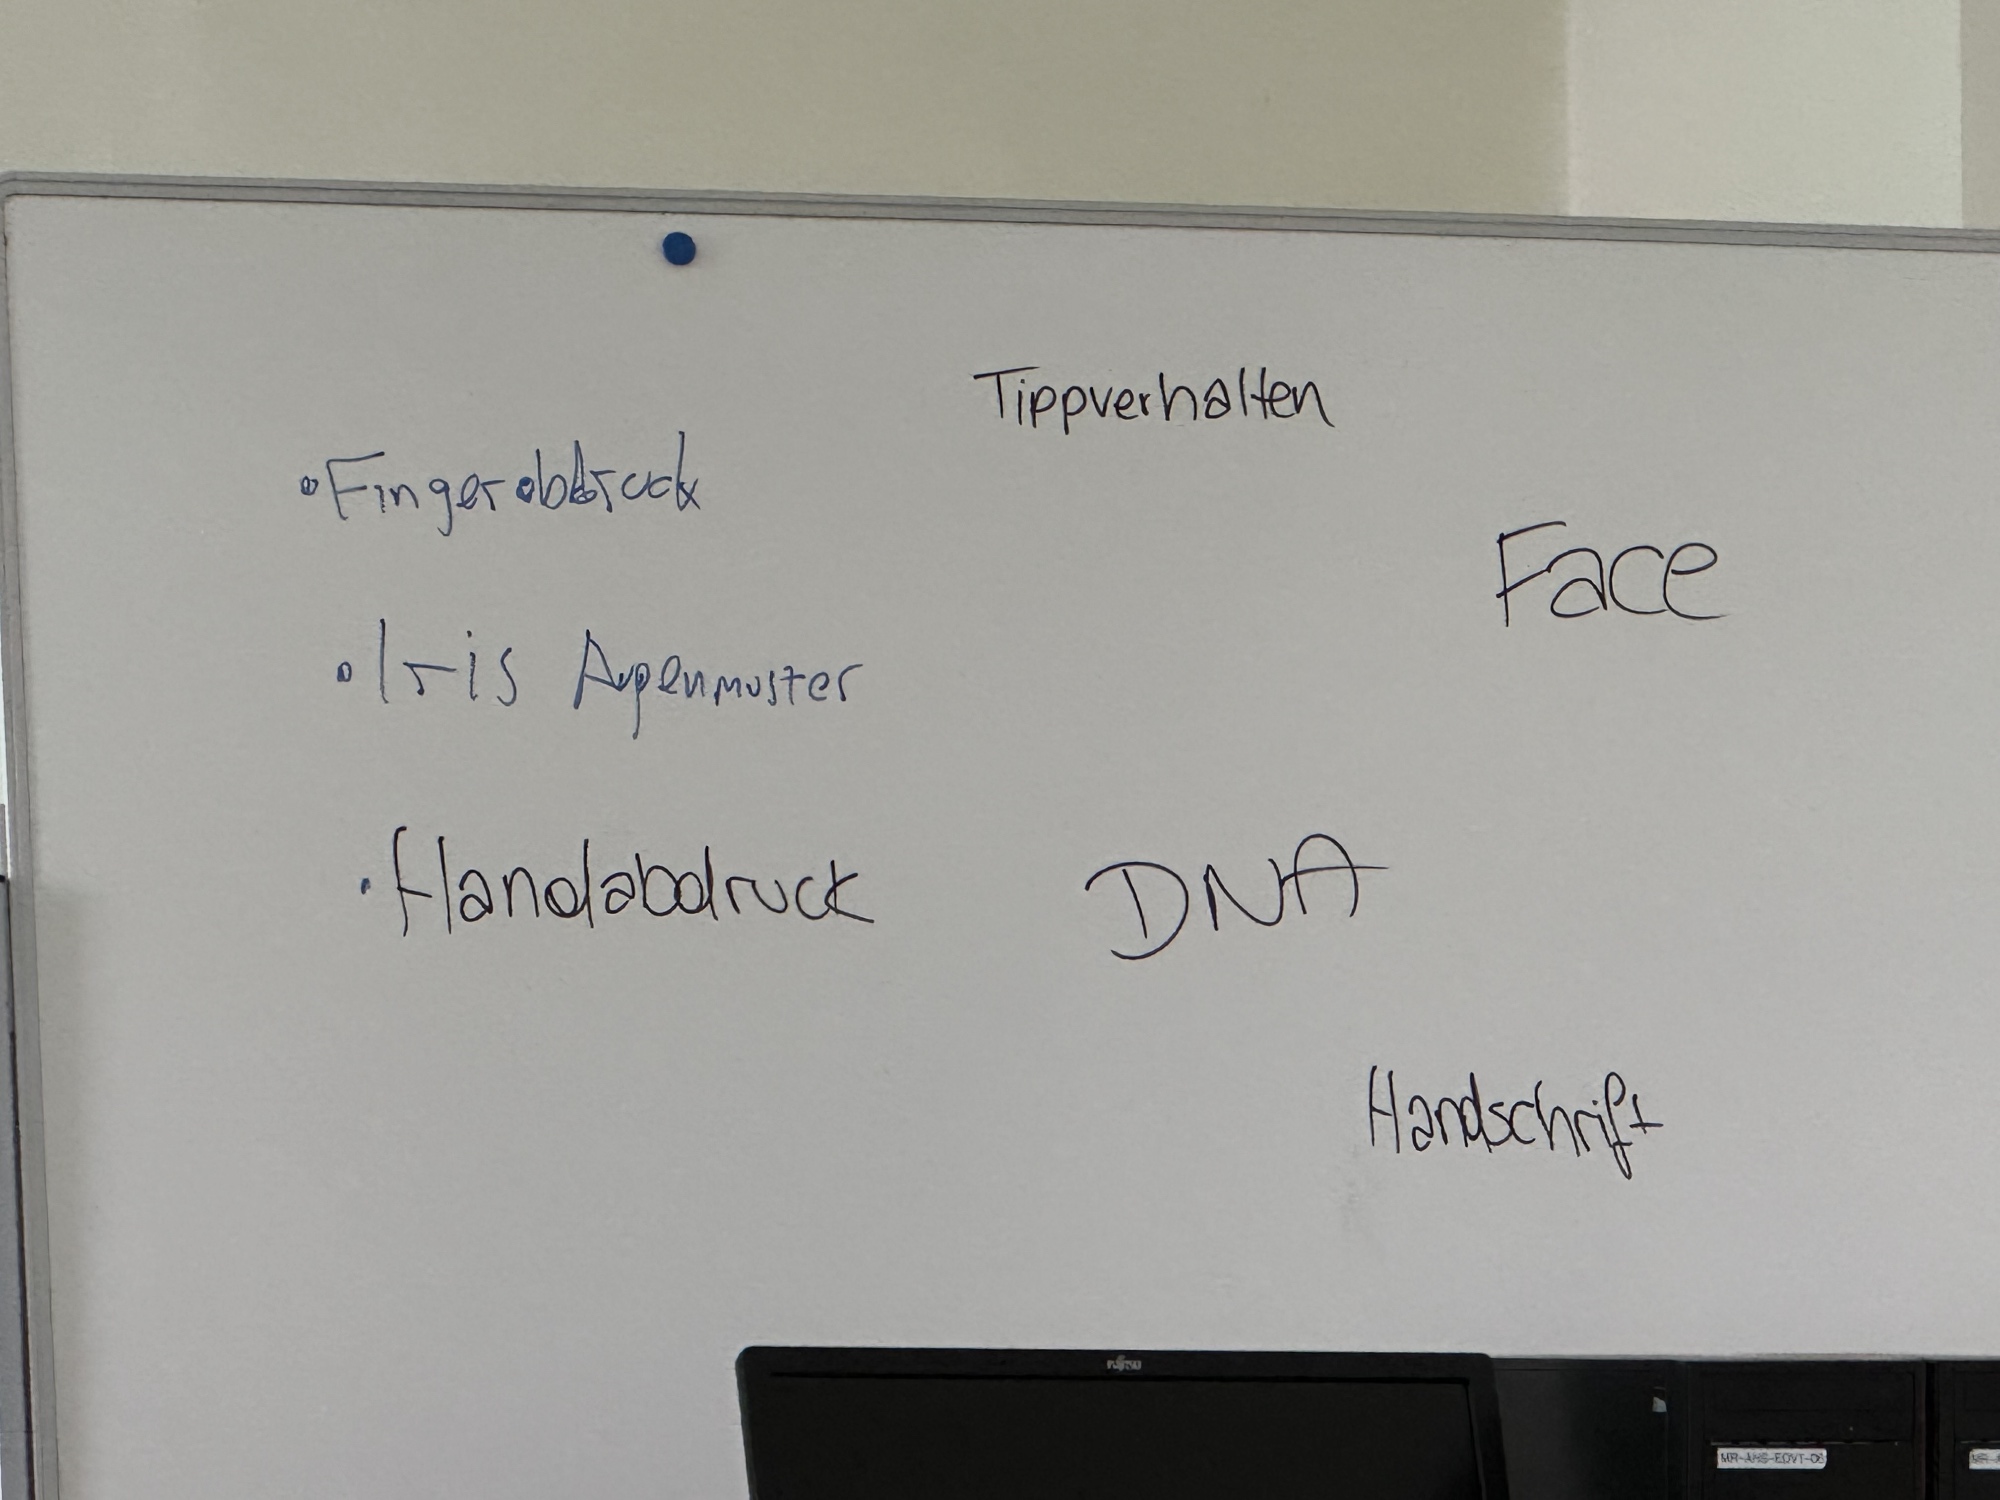 Tippverhalten
• Fingerabdruck
Face
• Iris Augenmuster
• Handabdruck
DNA
Handschrift
FUJITSU